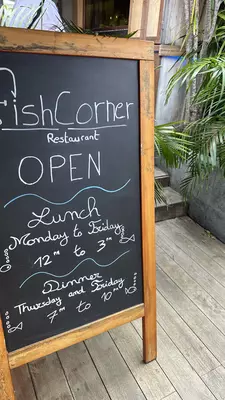 FishCorner
Restaurant
OPEN
Lunch
Monday to Friday
12PM to 3PM
Dinner
Thursday and Friday
7PM to 10PM